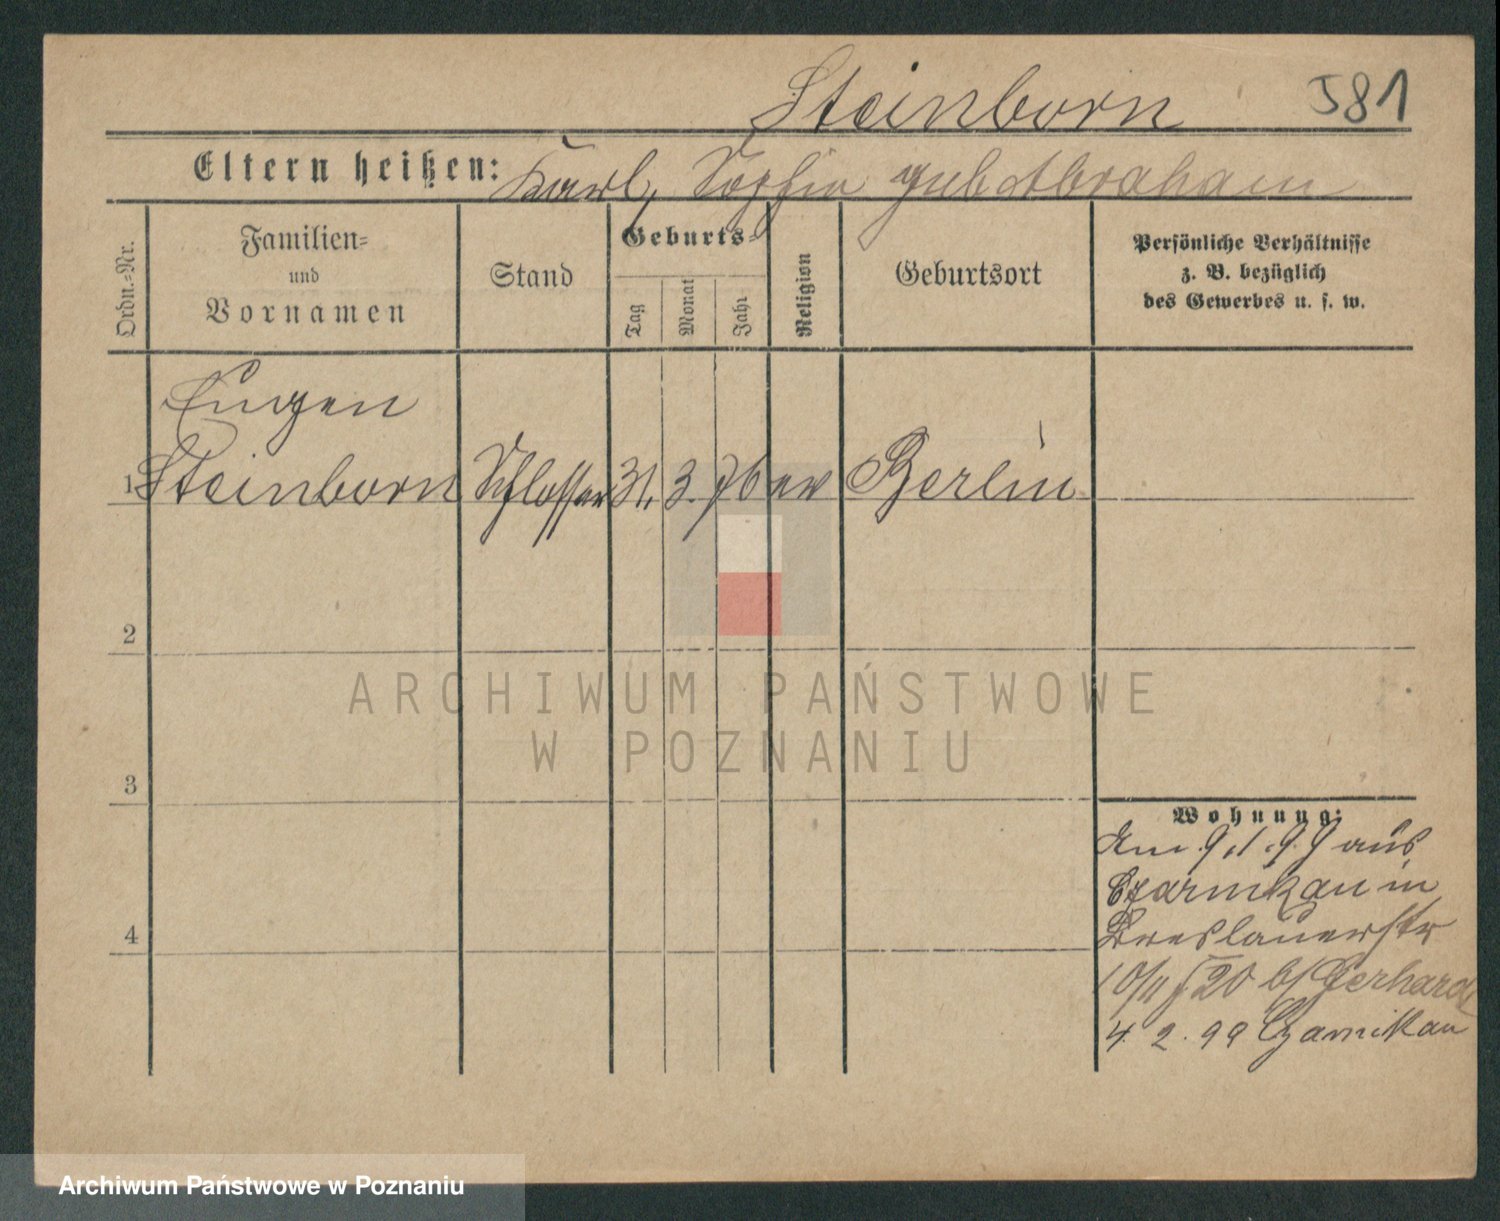 Steinborn 581
Eltern heißen: Karl, Sophie geb Abraham
Ordn.-Nr.
Familien-
und
Vornamen
Stand
Geburts-
Tag
Monat
Jahr
Religion
Geburtsort
Persönliche Verhältnisse
z. B. bezüglich
des Gewerbes u. s. w.
Eugen
1 Steinborn Schlosser 31. 3. 76 ev Berlin
2
3
4
Wohnung:
Am 9.1.99 aus
Czarnikau in
Breslauerstr
10/11 20 b/ Gerhardt
4. 2. 99 Czarnikau
ARCHIWUM PAŃSTWOWE
W POZNANIU
Archiwum Państwowe w Poznaniu